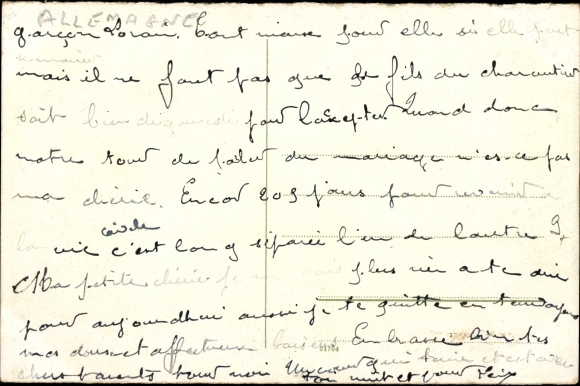 ALLEMAGNE
garçon Lorain. Tant mieux pour elle si elle peut
mais il ne faut pas que le fils du charcutier
soit bien dégourdi pour l'accepter Quand donc
notre tour de parler du mariage n'es-ce pas
ma chérie. Encor 205 jours pour revenir
la vie civile c'est long séparée l'un de l'autre
Ma petite chérie je ne vois plus rien a te dire
pour aujourdhui aussi je te quitte en t'envoyant
mes doux et affectueux baisers Embrasse bien tes
chers parents pour moi Un cœur qui t'aime et est a
ton nuit et jour